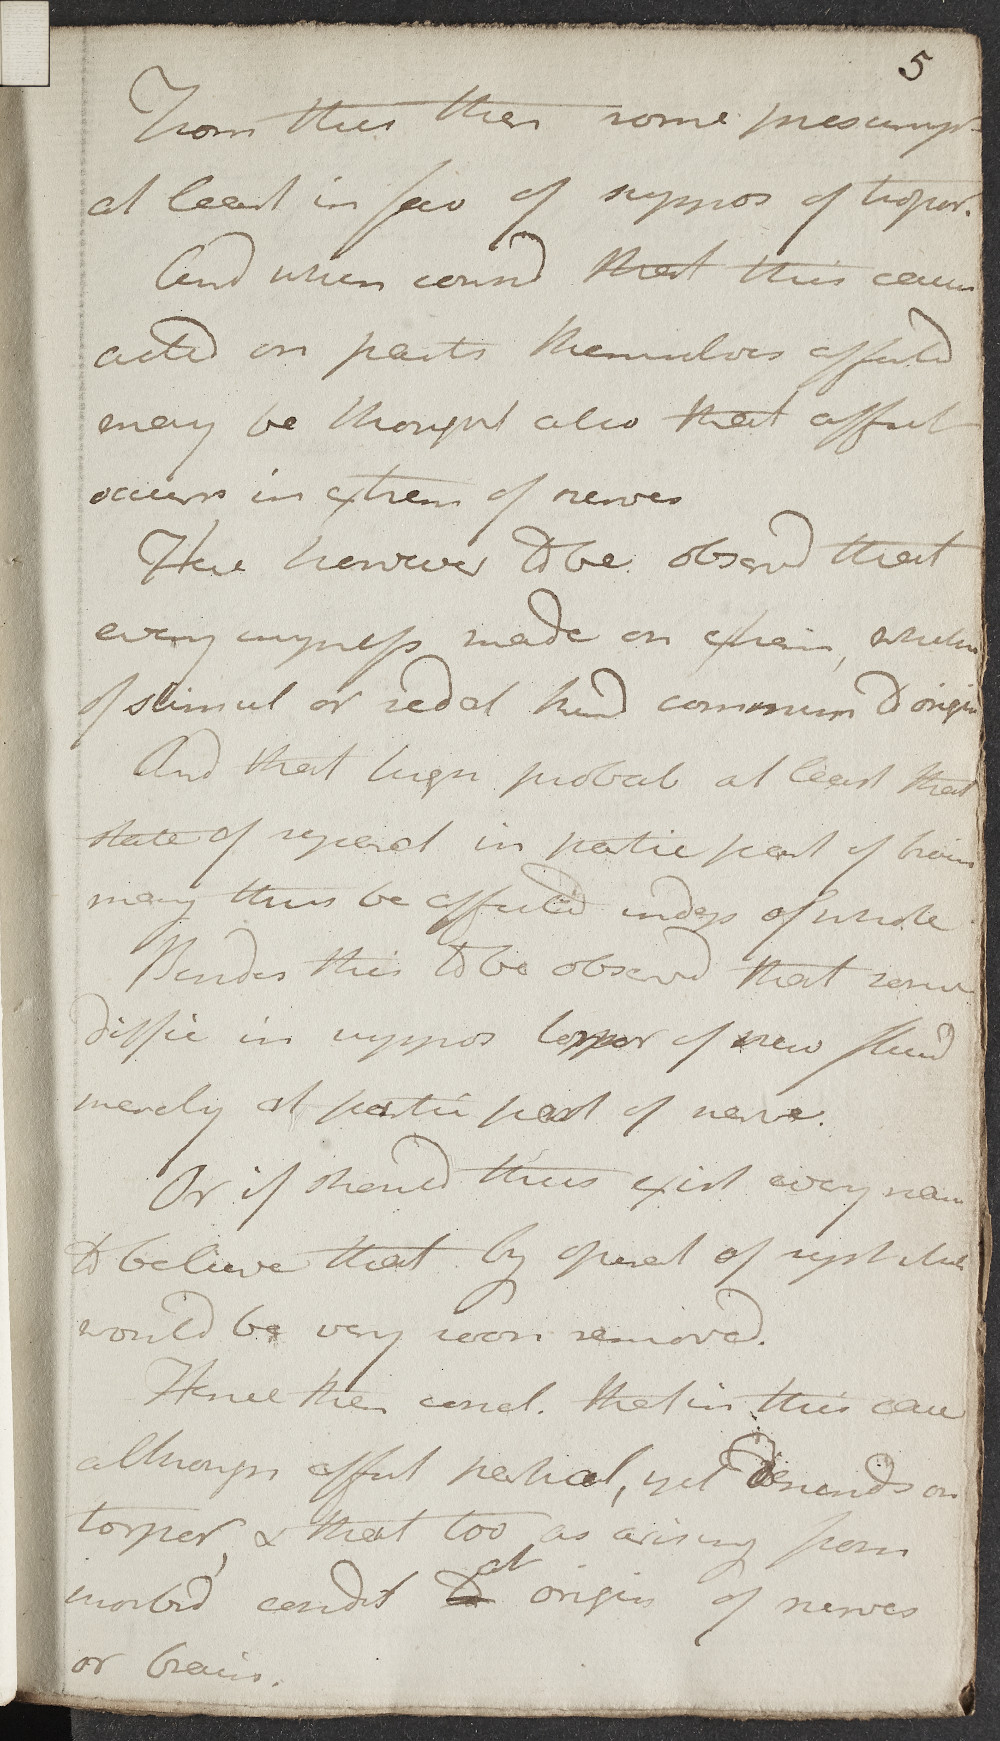 5
From this then some presump
at least in fav of suppos of torpor.
And when consd that this caus
acted on parts themselves affectd
may be thought also that affect
occurs in extrem of nerves
Here however to be observd that
every impress made on extrem, whether
of stimul or sedat kind commun to origin
And that high probab at least that
state of in partic part of brain
may thus be affected indep of whole
Besides this to be observd that some
diffic in suppos torpor of nerv fluid
merely at partic part of nerve.
Or if should thus exist every reas
to believe that by operat of syst itself
would be very soon removed.
Hence then concl. that in this case
although affect partial, yet depends on
torpor, & that too as arising from
morbid condit at origin of nerves
or brain.